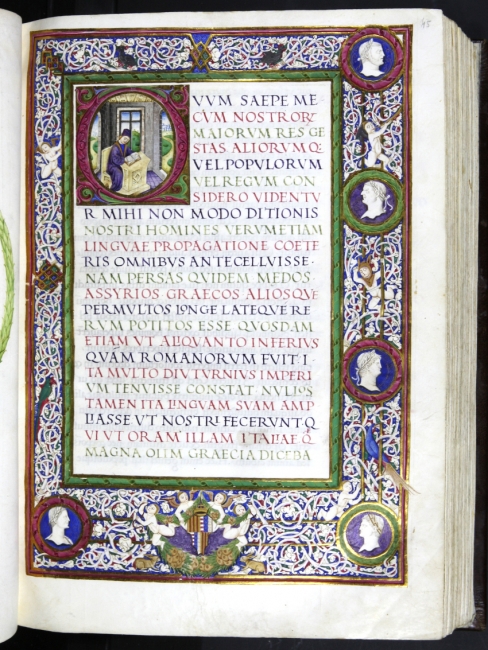 QVVM SAEPE ME
CVM NOSTRORꝜ
MAIORVM RES GE
STAS ALIORVMQ
VEL POPVLORVM
VEL REGVM CON
SIDERO VIDENTV
R MIHI NON MODO DITIONIS
NOSTRI HOMINES VERVM ETIAM
LINGVAE PROPAGATIONE COETE
RIS OMNIBVS ANTECELLVISSE·
NAM PERSAS QVIDEM MEDOS·
ASSYRIOS GRAECOS ALIOSQVE
PERMVLTOS LONGE LATEQVE RE
RVM POTITOS ESSE QVOSDAM
ETIAM VT ALIQVANTO INFERIVS
QVAM ROMANORVM FVIT I
TA MVLTO DIVTVRNIVS IMPERI
VM TENVISSE CONSTAT NVLLOS
TAMEN ITA LINGVAM SVAM AMP
LIASSE VT NOSTRI FECERVNT·Q
VI VT ORAM ILLAM ITALIAE Q
MAGNA OLIM GRAECIA DICEBA